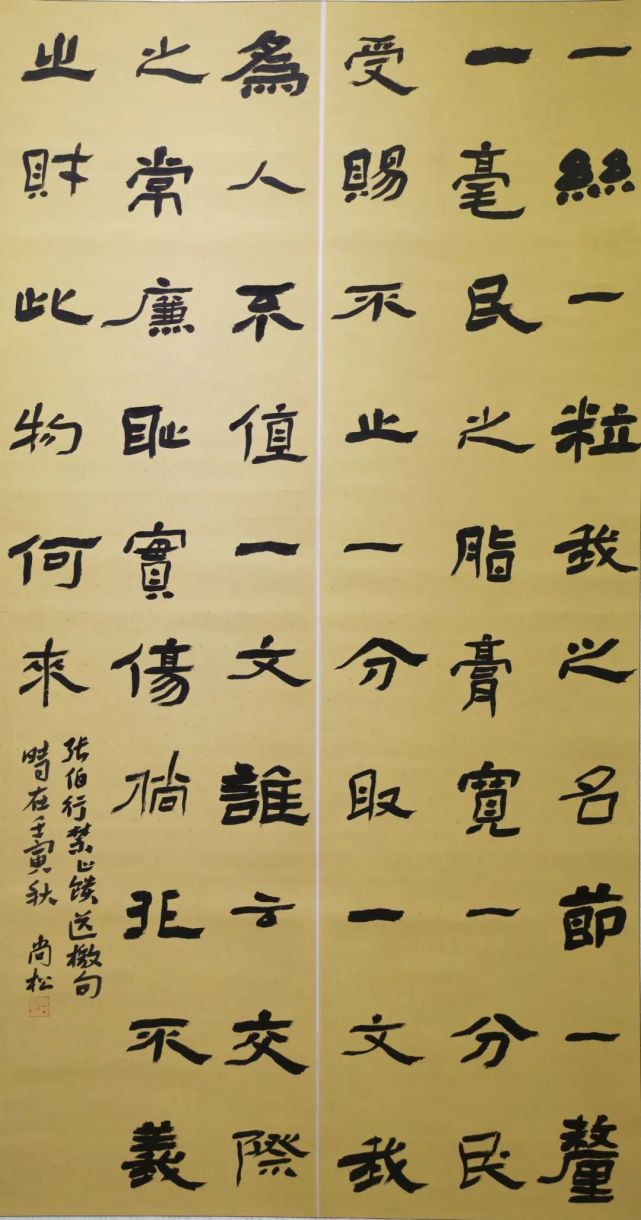 一絲一粒我之名節一釐
一毫民之脂膏寬一分民
受賜不止一分取一文我
爲人不值一文誰云交際
之常廉耻實傷倘非不義
之財此物何來
张伯行禁止馈送檄句
時在壬寅秋 尚松